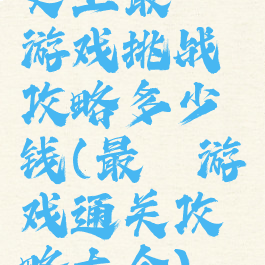 史上最
游戏挑战
攻略多少
钱(最 游
戏通关攻
略大全)